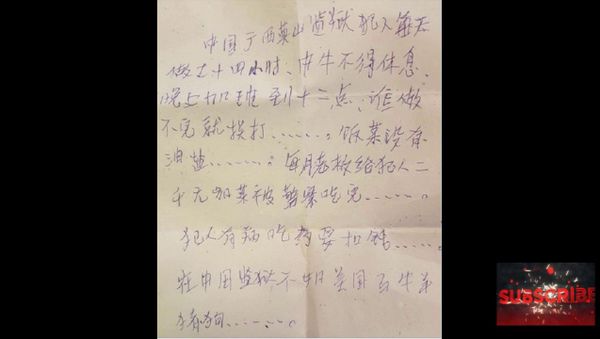 中国广西英山监狱犯人每天
做工十四小时、中午不得休息、
晚上加班到十二点、谁做
不完就挨打......。饭菜没有
油盐.......。每月老板给犯人二
千元加菜被警察吃完.......
犯人有病吃药要扣钱......
在中国监狱不如美国马牛羊
猪狗.......
SUBSCRIBE